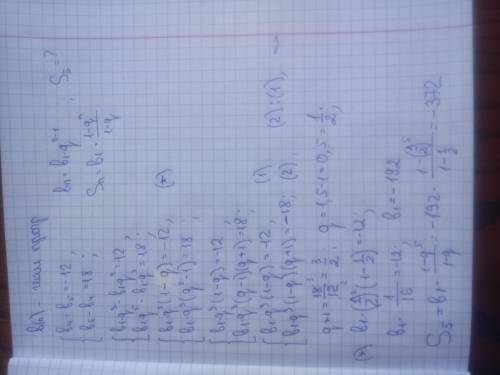 (bₙ) - геом прогр
{ b₄ - b₅ = -12 ; bₙ = b₁·qⁿ⁻¹ , S₅ = ?
{ b₆ - b₄ = 18 ; Sₙ = b₁ · (1-qⁿ)/(1-q)
{ b₁q³ - b₁q⁴ = -12 ,
{ b₁q⁵ - b₁q³ = 18 ;
{ b₁q³(1-q) = -12 , (*)
{ b₁q³(q²-1) = 18 ;
{ b₁q³(1-q) = -12
{ b₁q³(q-1)(q+1) = 18 ;
{ b₁q³(1-q) = -12 , (1)
{ b₁q³(1-q)(q+1) = -18 ; (2) . (2):(1) , ⇒
q+1 = 18/12 = 3/2 ; q = 1,5-1 = 0,5 = 1/2 ;
(*) b₁·(1/2)³(1-1/2) = -12 ;
b₁ · 1/16 = -12 . b₁ = -192
S₅ = b₁ · (1-q⁵)/(1-q) = -192 · (1-(1/2)⁵)/(1-1/2) = -372